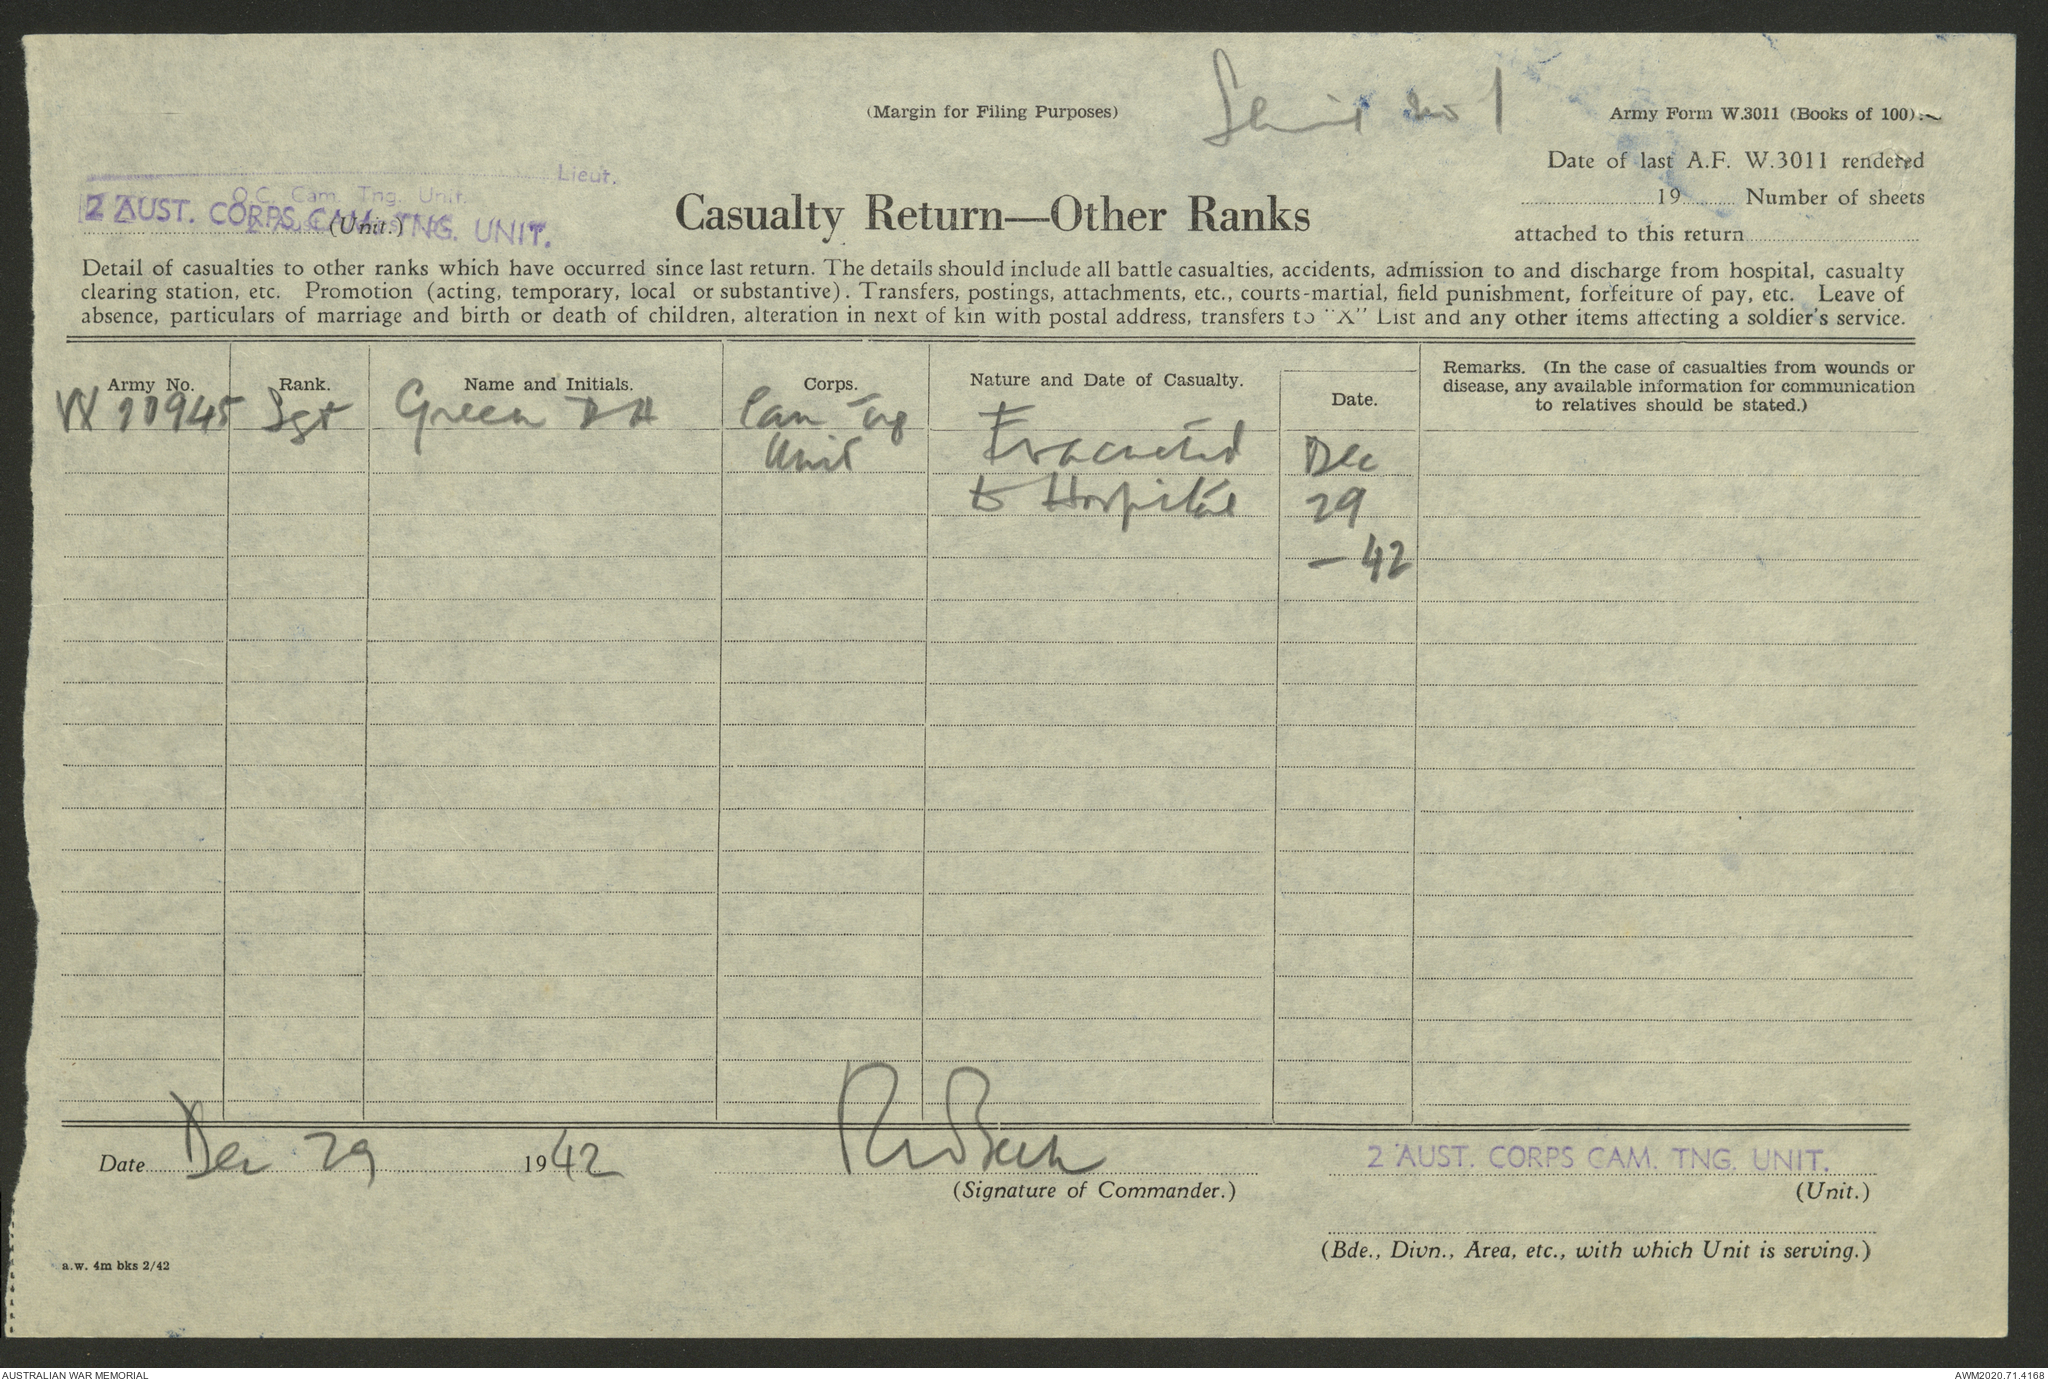 (Margin for Filing Purposes)
Serial no 1
Army Form W.3011 (Books of 100).
Date of last A.F. W.3011 rendered
19 Number of sheets
attached to this return
Lieut.
O.C. Cam. Tng. Unit.
2 AUST. CORPS CAM. TNG. UNIT.
(Unit.)
Casualty Return—Other Ranks
Detail of casualties to other ranks which have occurred since last return. The details should include all battle casualties, accidents, admission to and discharge from hospital, casualty
clearing station, etc. Promotion (acting, temporary, local or substantive). Transfers, postings, attachments, etc., courts-martial, field punishment, forfeiture of pay, etc. Leave of
absence, particulars of marriage and birth or death of children, alteration in next of kin with postal address, transfers to "X" List and any other items affecting a soldier's service.
Army No. Rank. Name and Initials. Corps. Nature and Date of Casualty. Date. Remarks. (In the case of casualties from wounds or
disease, any available information for communication
to relatives should be stated.)
Sgt Green Cam Tng
Unit Evacuated Dec
to Hospital 29
- 42
Date Dec 29 1942
(Signature of Commander.)
2 AUST. CORPS CAM. TNG. UNIT.
(Unit.)
(Bde., Divn., Area, etc., with which Unit is serving.)
a.w. 4m bks 2/42
AUSTRALIAN WAR MEMORIAL
AWM2020.71.4168